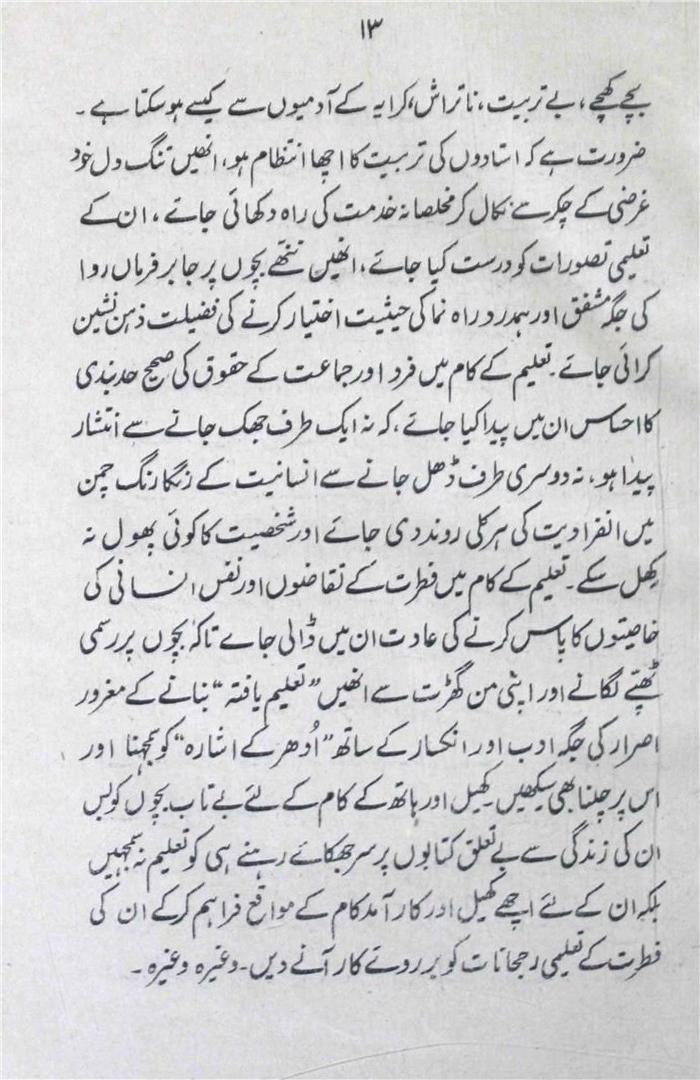 ۱۳
بچے کھچے، بے تربیت، ناتراش، کرایہ کے آدمیوں سے کیسے ہو سکتا ہے۔
ضرورت ہے کہ استادوں کی تربیت کا اچھا انتظام ہو، انھیں تنگ دل خود
غرضی کے چکر سے نکال کر مخلصانہ خدمت کی راہ دکھائی جائے، ان کے
تعلیمی تصورات کو درست کیا جائے، انھیں ننھے بچوں پر جابر فرماں روا
کی جگہ مشفق اور ہمدرد راہ نما کی حیثیت اختیار کرنے کی فضیلت ذہن نشین
کرائی جائے۔ تعلیم کے کام میں فرد اور جماعت کے حقوق کی صحیح حد بندی
کا احساس ان میں پیدا کیا جائے، کہ نہ ایک طرف جھک جانے سے انتشار
پیدا ہو، نہ دوسری طرف ڈھل جانے سے انسانیت کے رنگا رنگ چمن
میں انفرادیت کی ہر کلی روند دی جائے اور شخصیت کا کوئی پھول نہ
کھل سکے۔ تعلیم کے کام میں فطرت کے تقاضوں اور نفس انسانی کی
خاصیتوں کا پاس کرنے کی عادت ان میں ڈالی جاے تاکہ بچوں پر رسمی
ٹھپے لگانے اور اپنی من گھڑت سے انھیں "تعلیم یافتہ" بنانے کے مغرور
اصرار کی جگہ ادب اور انکسار کے ساتھ "اُدھر کے اشارہ" کو سمجھنا اور
اس پر چلنا بھی سیکھیں۔ کھیل اور ہاتھ کے کام کے لئے بے تاب بچوں کو بس
ان کی زندگی سے بے تعلق کتابوں پر سر جھکائے رہنے ہی کو تعلیم نہ سمجھیں
بلکہ ان کے لئے اچھے کھیل اور کار آمد کام کے مواقع فراہم کر کے ان کی
فطرت کے تعلیمی رجحانات کو بر روئے کار آنے دیں۔ وغیرہ وغیرہ۔